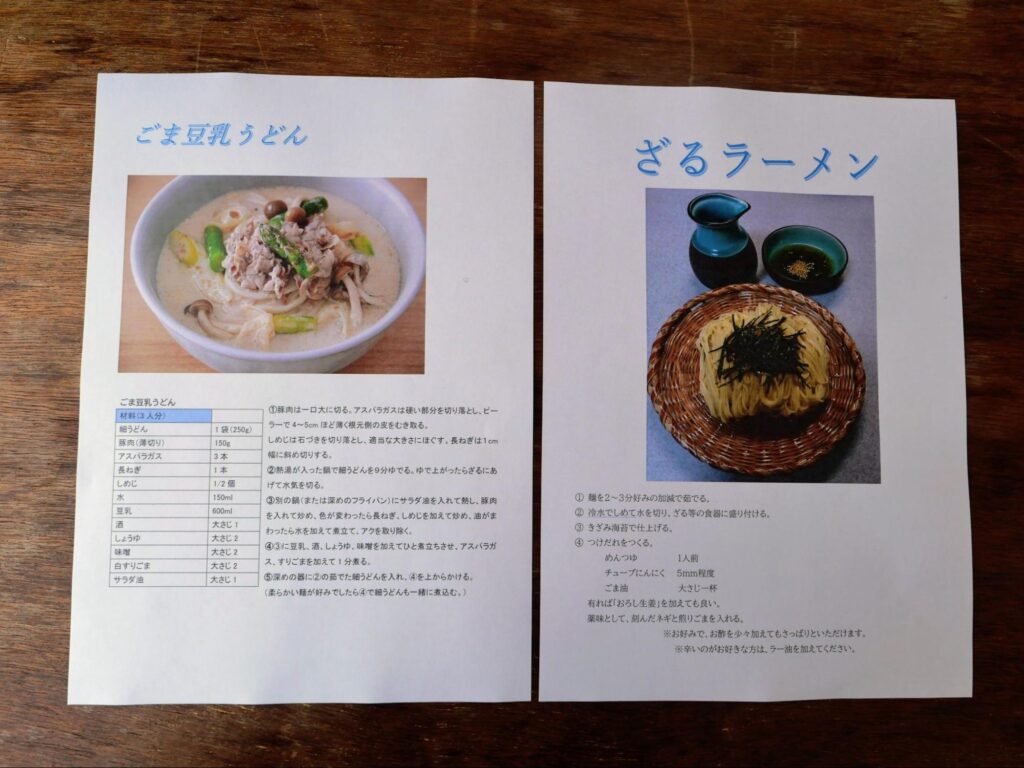 ごま豆乳うどん
ごま豆乳うどん
材料(3人分)
細うどん 1袋(250g)
豚肉(薄切り) 150g
アスパラガス 3本
長ねぎ 1本
しめじ 1/2個
水 150ml
豆乳 600ml
酒 大さじ1
しょうゆ 大さじ2
味噌 大さじ2
白すりごま 大さじ2
サラダ油 大さじ1
①豚肉は一口大に切る。アスパラガスは硬い部分を切り落とし、ピー
ラーで4~5cmほど薄く根元側の皮をむき取る。
しめじは石づきを切り落とし、適当な大きさにほぐす。長ねぎは1cm
幅に斜め切りする。
②熱湯が入った鍋で細うどんを9分ゆでる。ゆで上がったらざるにあ
げて水気を切る。
③別の鍋(または深めのフライパン)にサラダ油を入れて熱し、豚肉
を入れて炒め、色が変わったら長ねぎ、しめじを加えて炒め、油がま
わったら水を加えて煮立て、アクを取り除く。
④③に豆乳、酒、しょうゆ、味噌を加えてひと煮立ちさせ、アスパラガ
ス、すりごまを加えて1分煮る。
⑤深めの器に②の茹でた細うどんを入れ、④を上からかける。
(柔らかい麺が好みでしたら④で細うどんも一緒に煮込む。)
ざるラーメン
① 麺を2~3分好みの加減で茹でる。
② 冷水でしめて水を切り、ざる等の食器に盛り付ける。
③ きざみ海苔で仕上げる。
④ つけだれをつくる。
めんつゆ 1人前
チューブにんにく 5mm程度
ごま油 大さじ一杯
有れば「おろし生姜」を加えても良い。
薬味として、刻んだネギと煎りごまを入れる。
※お好みで、お酢を少々加えてもさっぱりといただけます。
※辛いのがお好きな方は、ラー油を加えてください。